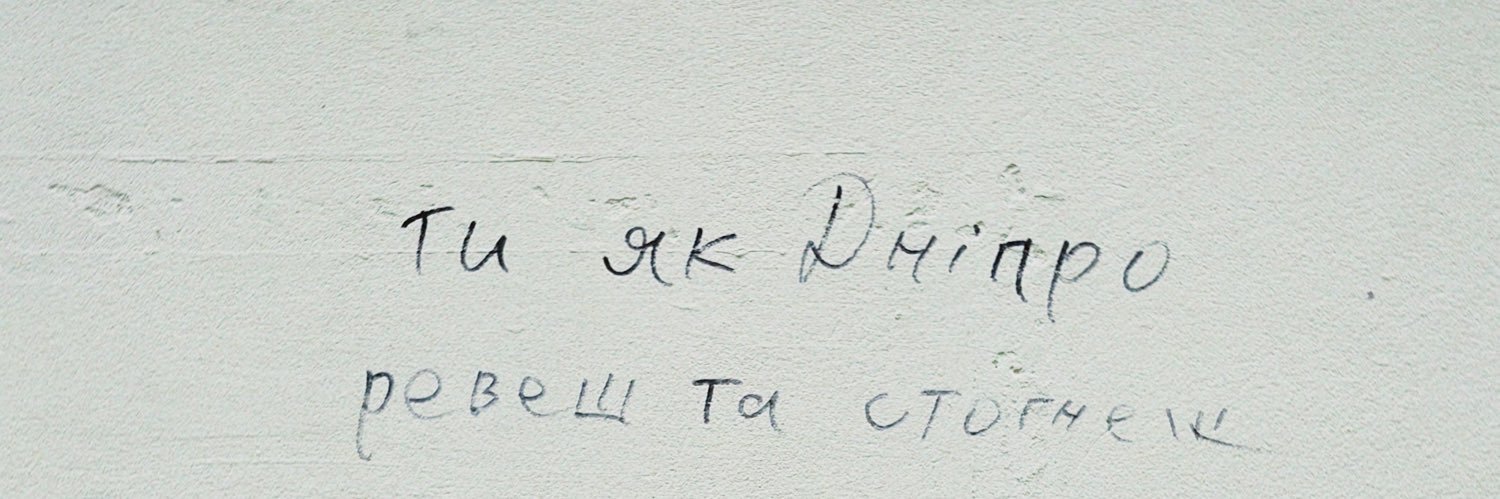 Ти як Дніпро
ревеш та стогнеш